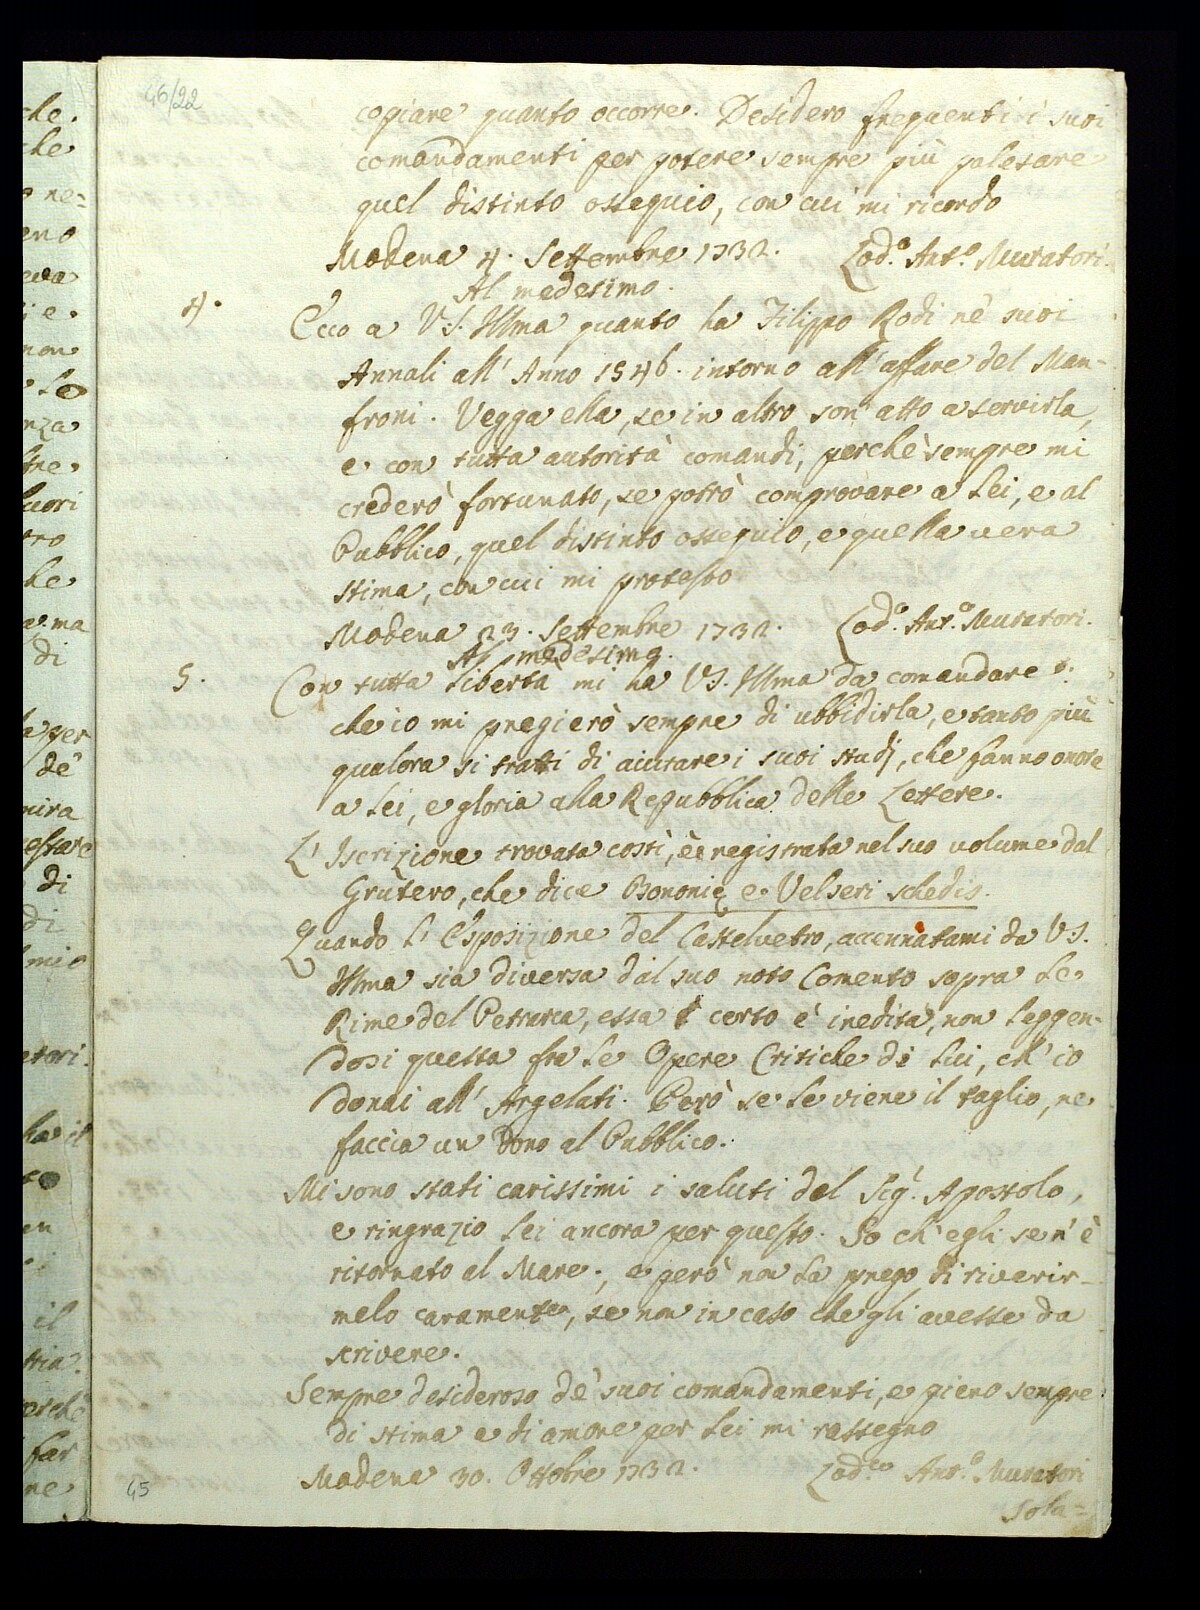 46/22
copiare quanto occorre. Desidero frequenti i suoi
comandamenti per potere sempre più palesare
quel distinto ossequio, con cui mi ricordo
Modena 4. Settembre 1732. Lod.º Ant.º Muratori.
Al medesimo.
4. Ecco a V.S. Illma quanto ha Filippo Rodi ne' suoi
Annali all' Anno 1546. intorno all' affare del Man-
froni. Vegga ella, se in altro son atto a servirla,
e con tutta autorità comandi, perchè sempre mi
crederò fortunato, se potrò comprovare a Lei, e al
Pubblico, quel distinto ossequio, e quella vera
stima, con cui mi protesto
Modena 23. Settembre 1732. Lod.º Ant.º Muratori.
Al medesimo.
5. Con tutta libertà mi ha VS. Illma da comandare
che io mi pregierò sempre di ubbidirla, e tanto più
qualora si tratti di aiutare i suoi studj, che fanno onore
a Lei, e gloria alla Repubblica delle Lettere.
L' Iscrizione trovata costì, è registrata nel suo volume dal
Grutero, che dice Bononię e Velseri schedis.
Quando l' Esposizione del Castelvetro, accennatami da VS.
Illma sia diversa dal suo noto Comento sopra le
Rime del Petrarca, essa certo è inedita, non leggen-
dosi questa fra le Opere Critiche di lui, ch' io
donai all' Argelati. Però se le viene il taglio, ne
faccia un dono al Pubblico.
Mi sono stati carissimi i saluti del Sig.r Apostolo,
e ringrazio Lei ancora per questo. So ch' egli se n' è
ritornato al Mare; e però non la prego di riverir-
melo caramente, se non in caso che gli avesse da
scrivere.
Sempre desideroso de' suoi comandamenti, e pieno sempre
di stima e di amore per Lei mi rassegno
Modena 30. Ottobre 1732. Lod.co Ant.º Muratori
Sola=
45